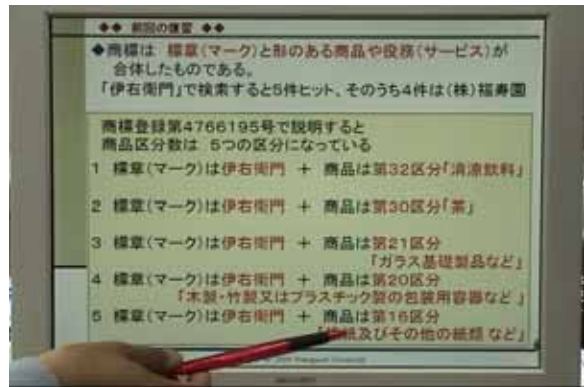 ◆◆ 前回の復習 ◆◆
◆商標は 標章(マーク)と形のある商品や役務(サービス)が
合体したものである。
「伊右衛門」で検索すると5件ヒット、そのうち4件は(株)福寿園
商標登録第4766195号で説明すると
商品区分数は 5つの区分になっている
1 標章(マーク)は伊右衛門 + 商品は第32区分「清涼飲料」
2 標章(マーク)は伊右衛門 + 商品は第30区分「茶」
3 標章(マーク)は伊右衛門 + 商品は第21区分
「ガラス基礎製品など」
4 標章(マーク)は伊右衛門 + 商品は第20区分
「木製・竹製又はプラスチック製の包装用容器など」
5 標章(マーク)は伊右衛門 + 商品は第16区分
紙及びその他の紙類 など」